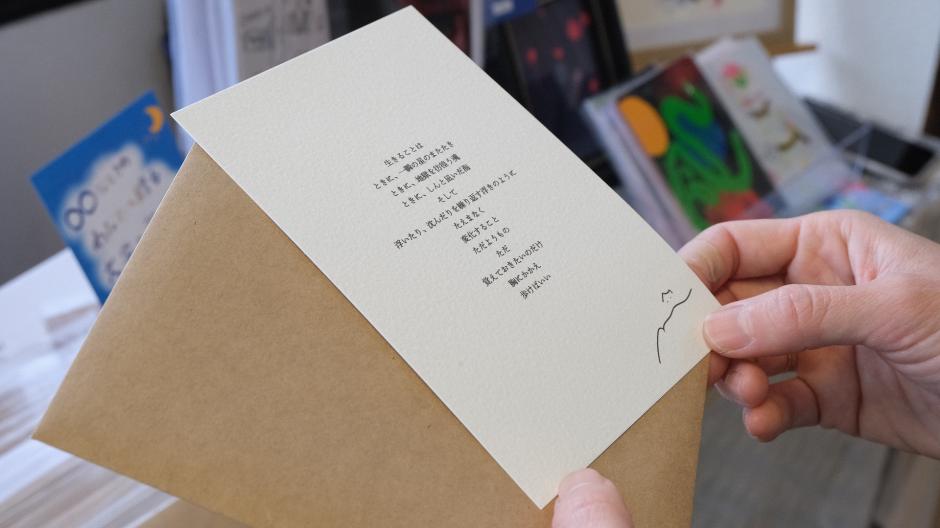 生きることは
ときに、一瞬の星のまたたき
ときに、地球を彷徨う魂
ときに、しんと凪いだ海
そして
浮いたり、沈んだりを繰り返す浮きのように
たえまなく
変化すること
ただようもの
ただ
覚えておきたいのだけ
胸にかかえ
歩けばいい